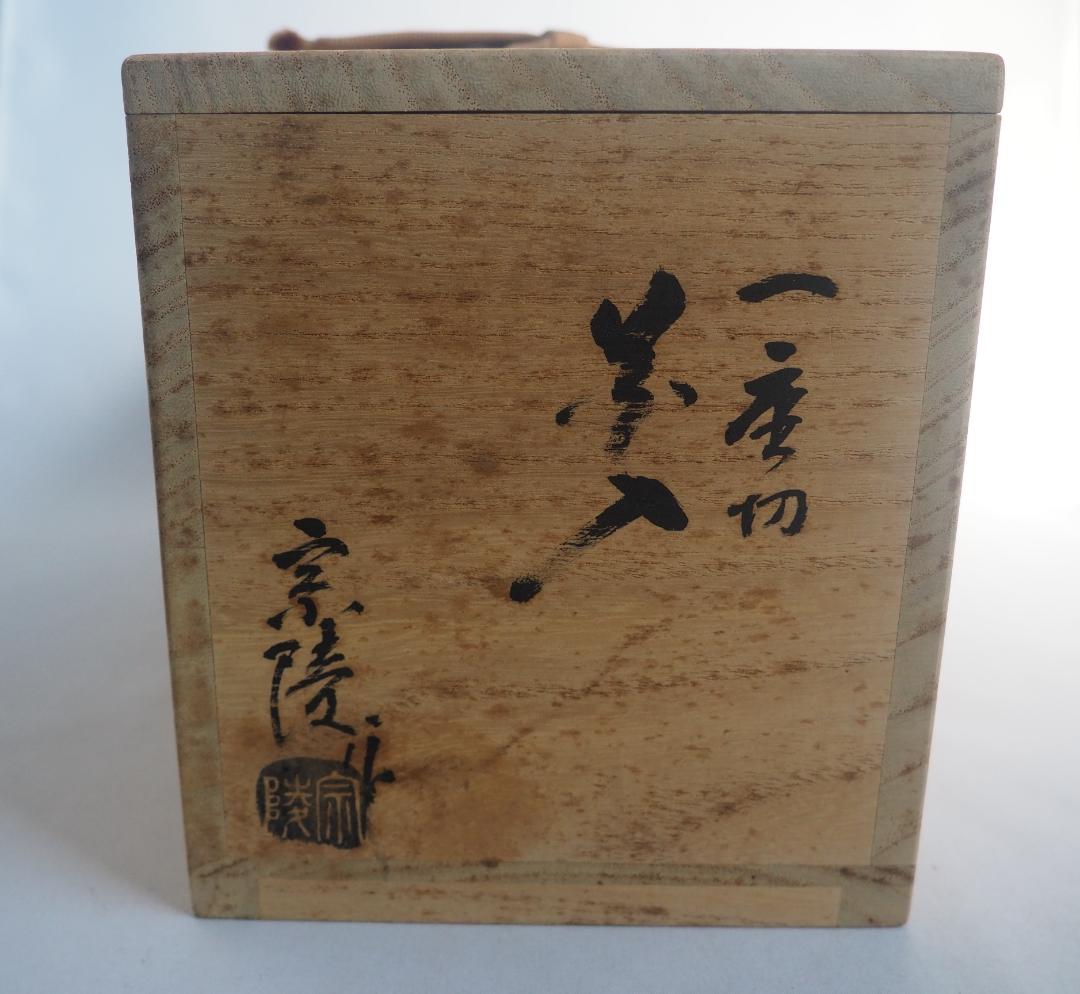 一重切
花入
宗陵作
宗陵